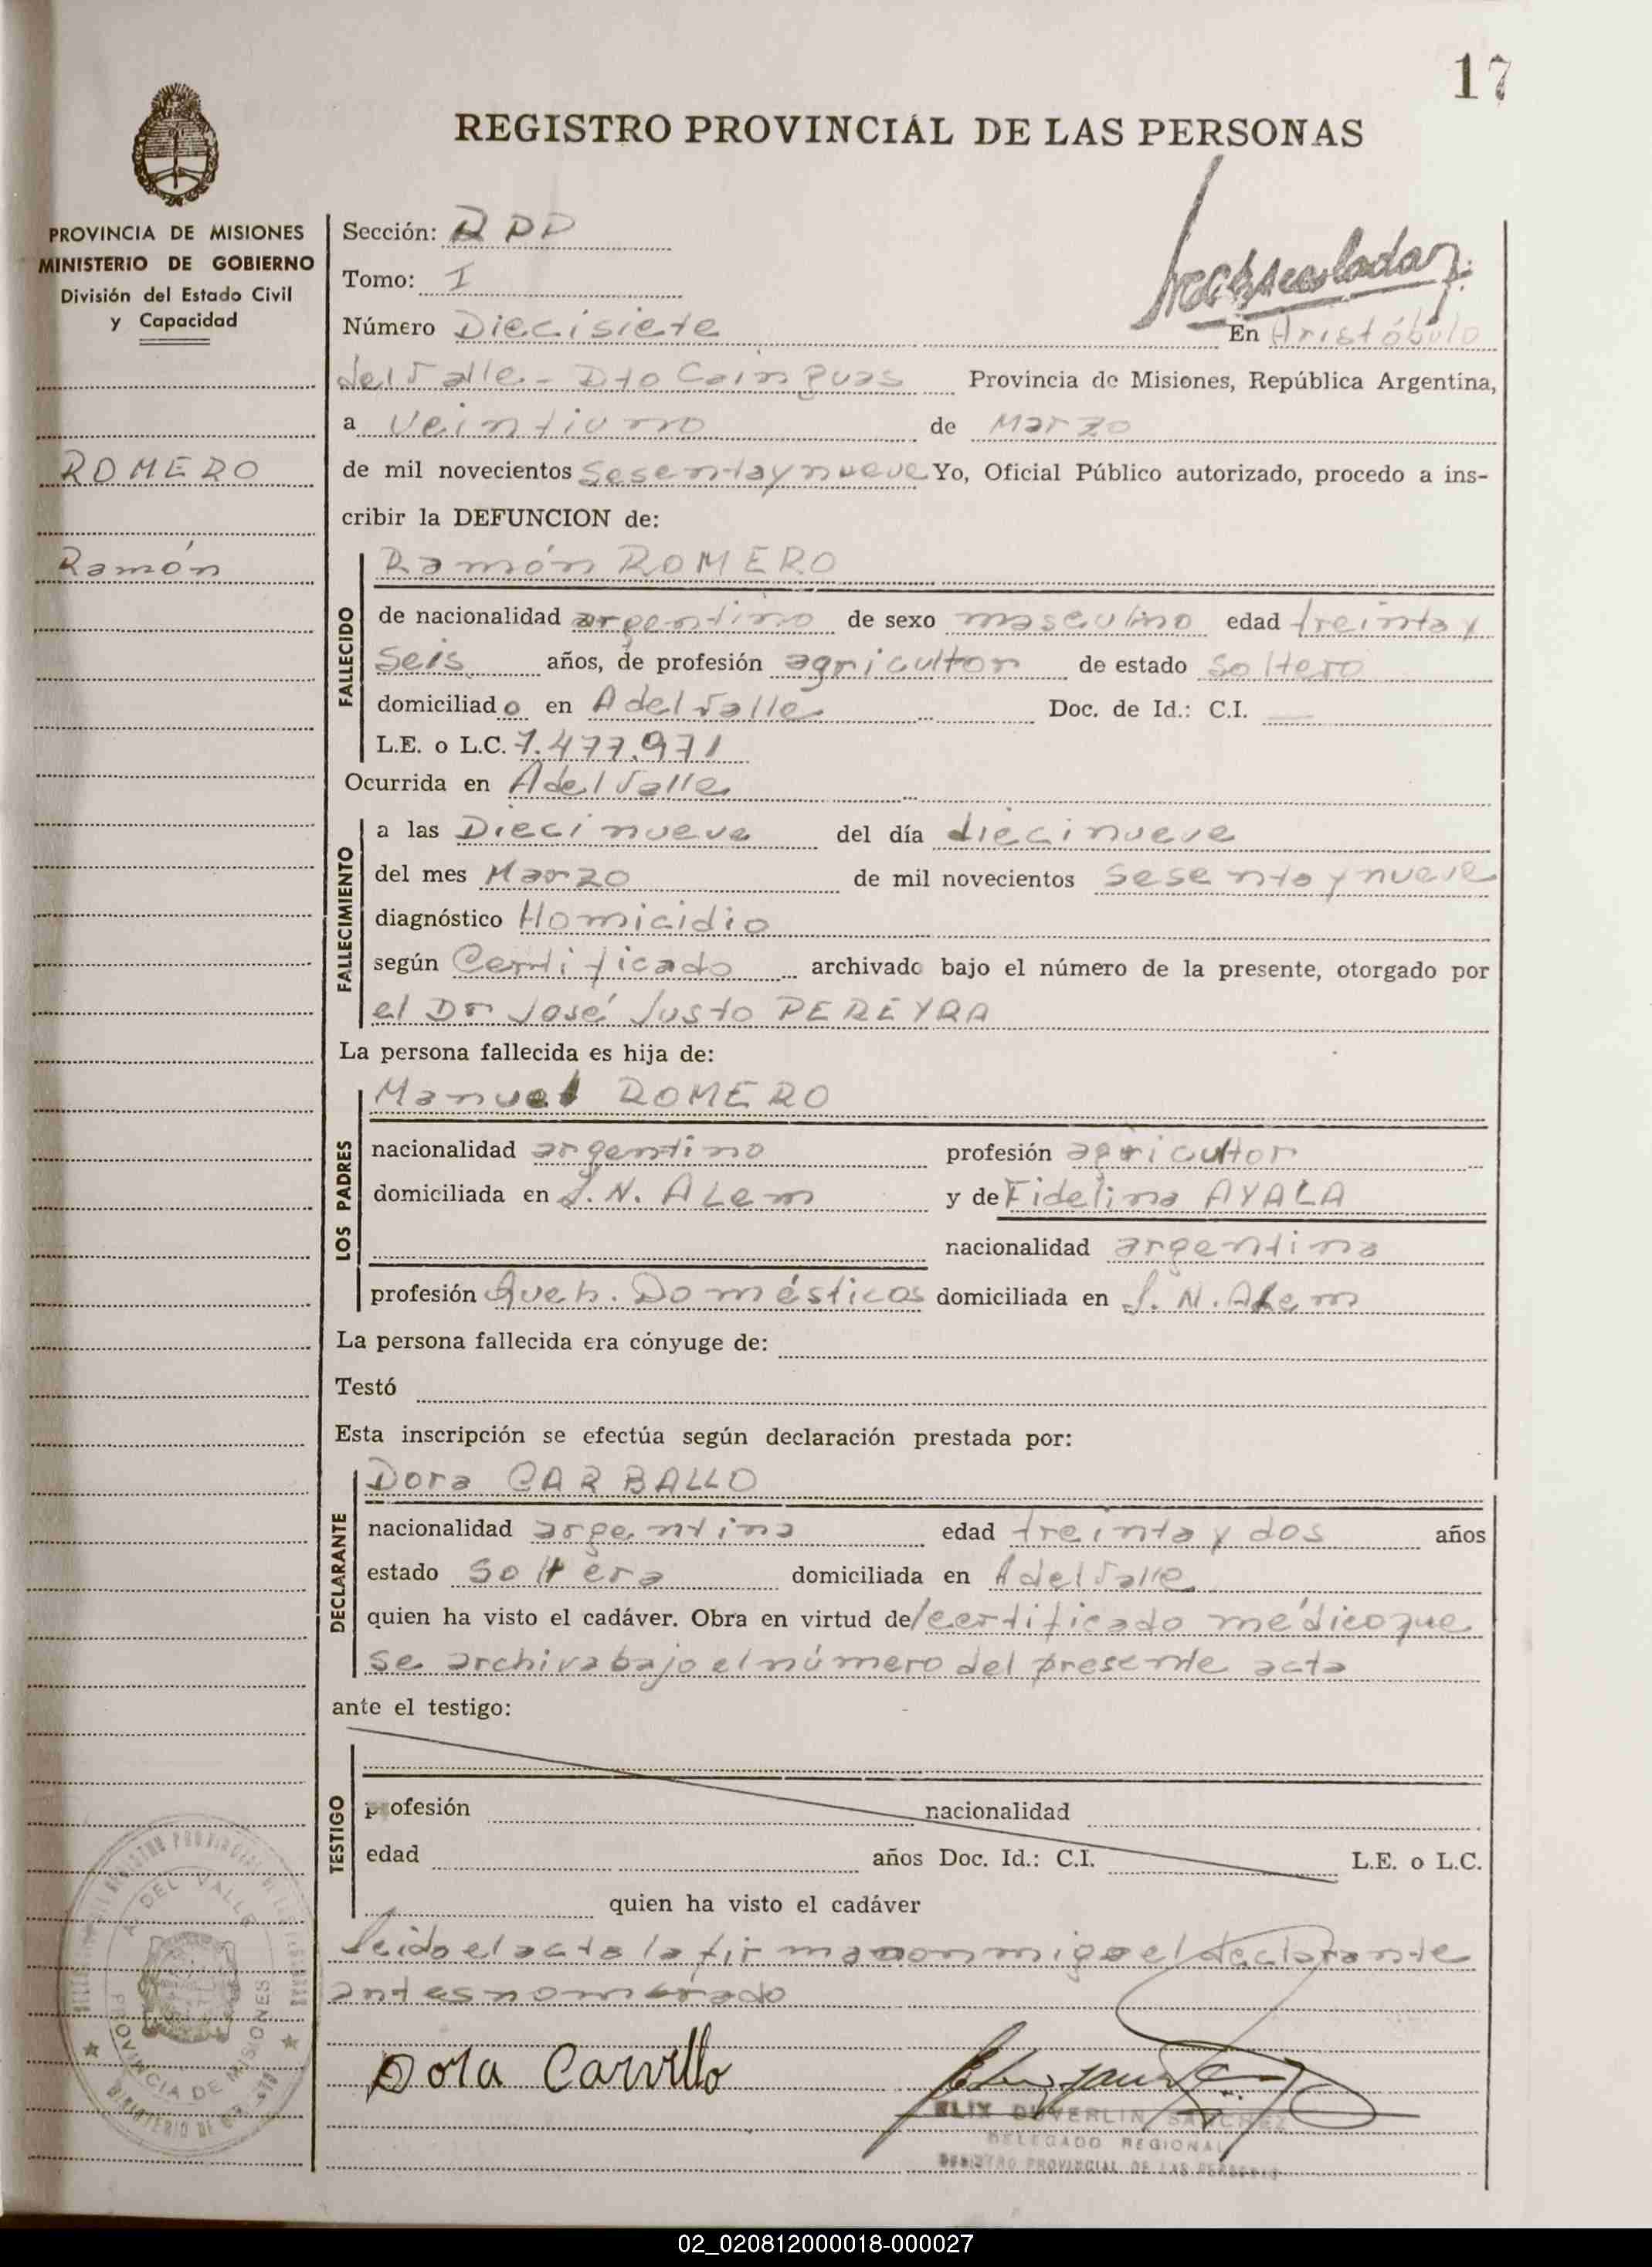 17
REGISTRO PROVINCIAL DE LAS PERSONAS
PROVINCIA DE MISIONES
MINISTERIO DE GOBIERNO
División del Estado Civil
y Capacidad
ROMERO
Ramón
Sección:
Tomo: I
Número Diecisiete
En Aristóbulo
del Valle - Dto Cainguas Provincia de Misiones, República Argentina,
a veintiuno de Marzo
de mil novecientos sesenta y nueve Yo, Oficial Público autorizado, procedo a ins-
cribir la DEFUNCION de:
FALLECIDO
Ramón ROMERO
de nacionalidad argentino de sexo masculino edad treinta y
seis años, de profesión agricultor de estado soltero
domiciliado en A del Valle Doc. de Id.: C.I.
L.E. o L.C. 7.477.971
Ocurrida en A del Valle
FALLECIMIENTO
a las Diecinueve del día diecinueve
del mes Marzo de mil novecientos sesenta y nueve
diagnóstico Homicidio
según Certificado archivado bajo el número de la presente, otorgado por
el Dr José Justo PEREYRA
La persona fallecida es hija de:
LOS PADRES
Manuel ROMERO
nacionalidad argentino profesión agricultor
domiciliada en L. N. ALem y de Fidelina AYALA
nacionalidad argentina
profesión Queh. Domésticos domiciliada en L. N. ALem
La persona fallecida era cónyuge de:
Testó
Esta inscripción se efectúa según declaración prestada por:
DECLARANTE
Dora CARBALLO
nacionalidad argentina edad treinta y dos años
estado soltera domiciliada en A del Valle
quien ha visto el cadáver. Obra en virtud del certificado médico que
se archiva bajo el número del presente acta
ante el testigo:
TESTIGO
profesión nacionalidad
edad años Doc. Id.: C.I. L.E. o L.C.
quien ha visto el cadáver
Leido el acta la firman conmigo el declarante
antes nombrado
Dora Carvllo
DUVERLIN SANCHEZ
DELEGADO REGIONAL
REGISTRO PROVINCIAL DE LAS PERSONAS
REGISTRO PROVINCIAL DE LAS PERSONAS
A. DEL VALLE
PROVINCIA DE MISIONES
02_020812000018-000027